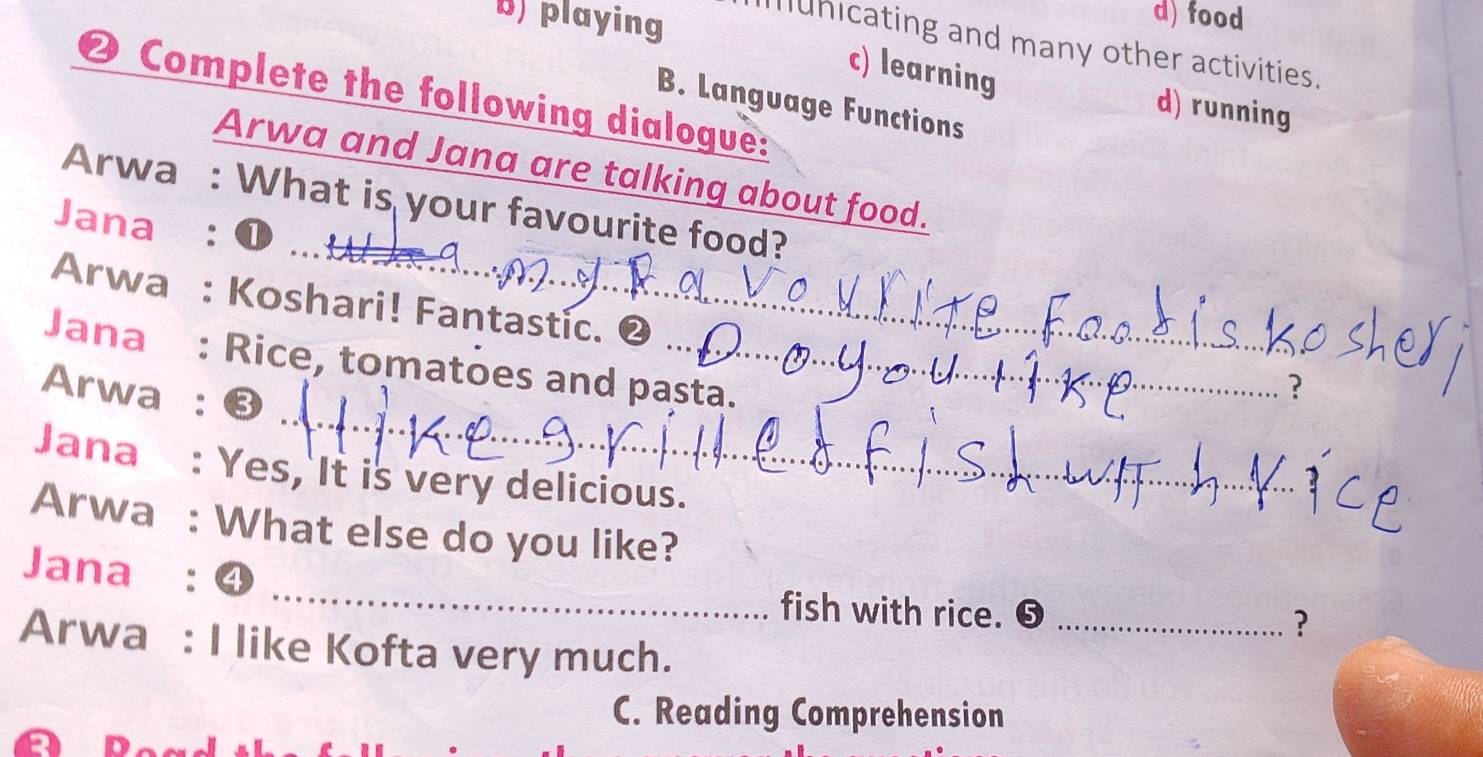 b) playing
municating and many other activities.
d) food
c) learning
d) running
B. Language Functions
❷ Complete the following dialogue:
Arwa and Jana are talking about food.
Arwa : What is your favourite food?
Jana : ❶ ... my Favourite Food is kosheri
Arwa : Koshari! Fantastic. ❷ ... Do you like ... ?
Jana : Rice, tomatoes and pasta.
Arwa : ❸ ... I like grilled fish with rice
Jana : Yes, It is very delicious.
Arwa : What else do you like?
Jana : ❹ ... fish with rice. ❺ ... ?
Arwa : I like Kofta very much.
C. Reading Comprehension
❸ Read